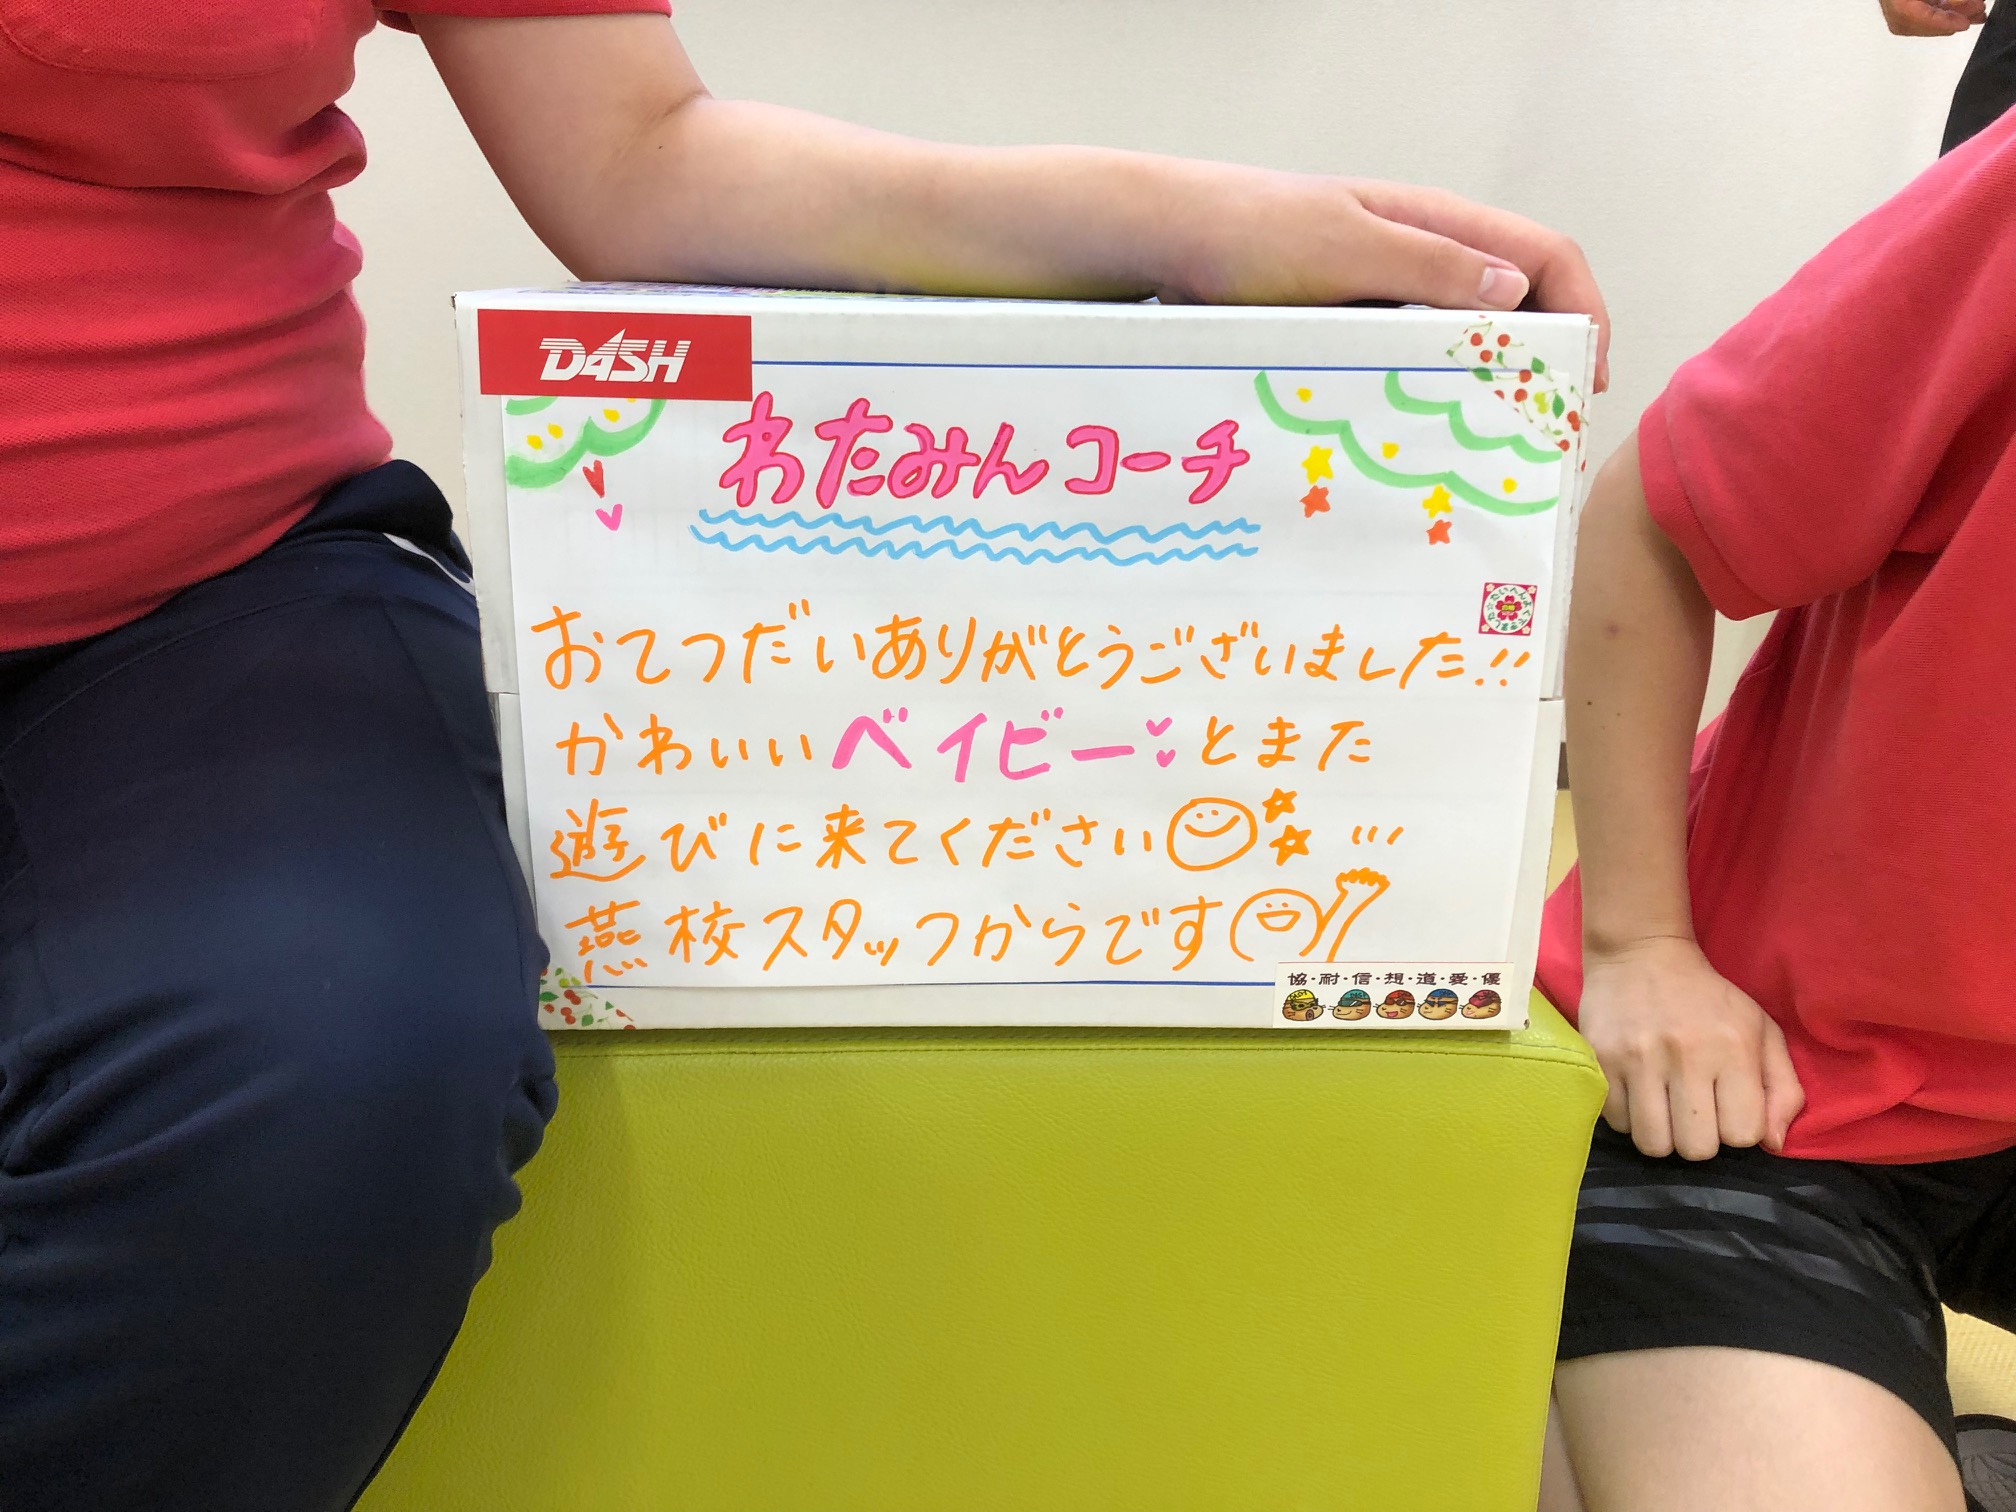 DASH
わたみんコーチ
たいへんよくできました
おてつだいありがとうございました!!
かわいいベイビーとまた
遊びに来てください
燕校スタッフからです
協・耐・信・想・道・愛・優